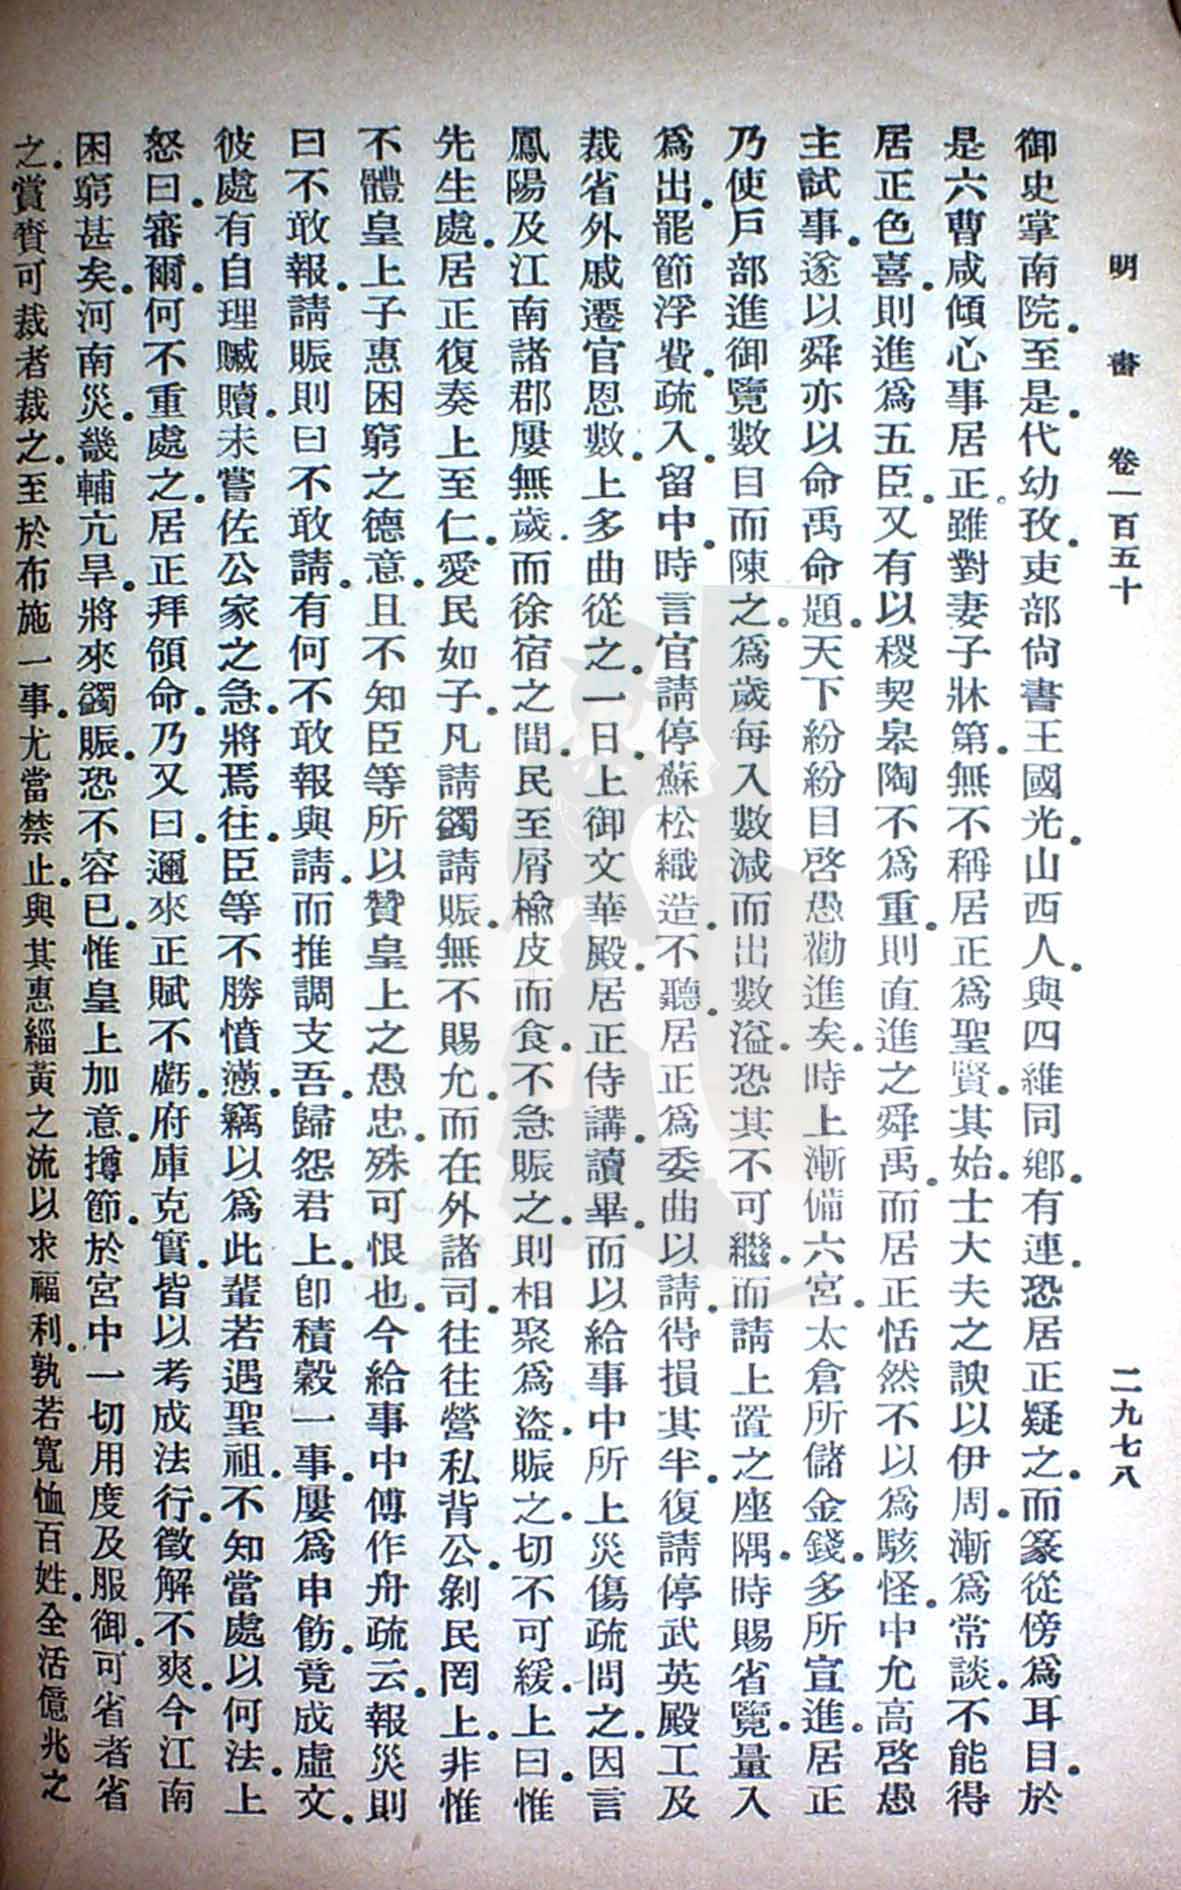 明書 卷一百五十 二九七八
御史掌南院。至是。代幼孜。吏部尙書王國光。山西人。與四維同鄕。有連。恐居正疑之。而篆從傍爲耳目。於
是六曹咸傾心事居正。雖對妻子牀第。無不稱居正爲聖賢。其始士大夫之諛以伊周。漸爲常談。不能得
居正色喜。則進爲五臣。又有以稷契皋陶不爲重。則直進之舜禹。而居正恬然不以爲駭怪。中允高啓愚
主試事。遂以舜亦以命禹命題。天下紛紛目啓愚勸進矣。時上漸備六宮。太倉所儲金錢。多所宣進。居正
乃使戶部進御覽數目而陳之。爲歲每入數減而出數溢。恐其不可繼。而請上置之座隅。時賜省覽。量入
爲出。罷節浮費。疏入。留中。時言官請停蘇松織造。不聽。居正爲委曲以請。得損其半。復請停武英殿工及
裁省外戚遷官恩數。上多曲從之。一日。上御文華殿。居正侍講讀畢。而以給事中所上災傷疏問之。因言
鳳陽及江南諸郡屢無歲。而徐宿之間。民至屑楡皮而食。不急賑之。則相聚爲盜。賑之切不可緩。上曰。惟
先生處。居正復奏上至仁。愛民如子。凡請蠲請賑。無不賜允。而在外諸司。往往營私背公。剝民罔上。非惟
不體皇上子惠困窮之德意。且不知臣等所以贊皇上之愚忠。殊可恨也。今給事中傅作舟疏云。報災則
曰不敢報。請賑則曰不敢請。有何不敢報與請。而推調支吾。歸怨君上。卽積穀一事。屢爲申飭。竟成虛文。
彼處有自理贓贖。未嘗佐公家之急。將焉往。臣等不勝憤懣。竊以爲此輩若遇聖祖。不知當處以何法。上
怒曰。審爾。何不重處之。居正拜領命。乃又曰。邇來正賦不虧。府庫克實。皆以考成法行。徵解不爽。今江南
困窮甚矣。河南災。畿輔亢旱。將來蠲賑。恐不容已。惟皇上加意。撙節。於宮中一切用度及服御。可省者省
之。賞賚可裁者裁之。至於布施一事。尤當禁止。與其惠緇黃之流以求福利。孰若寬恤百姓。全活億兆之